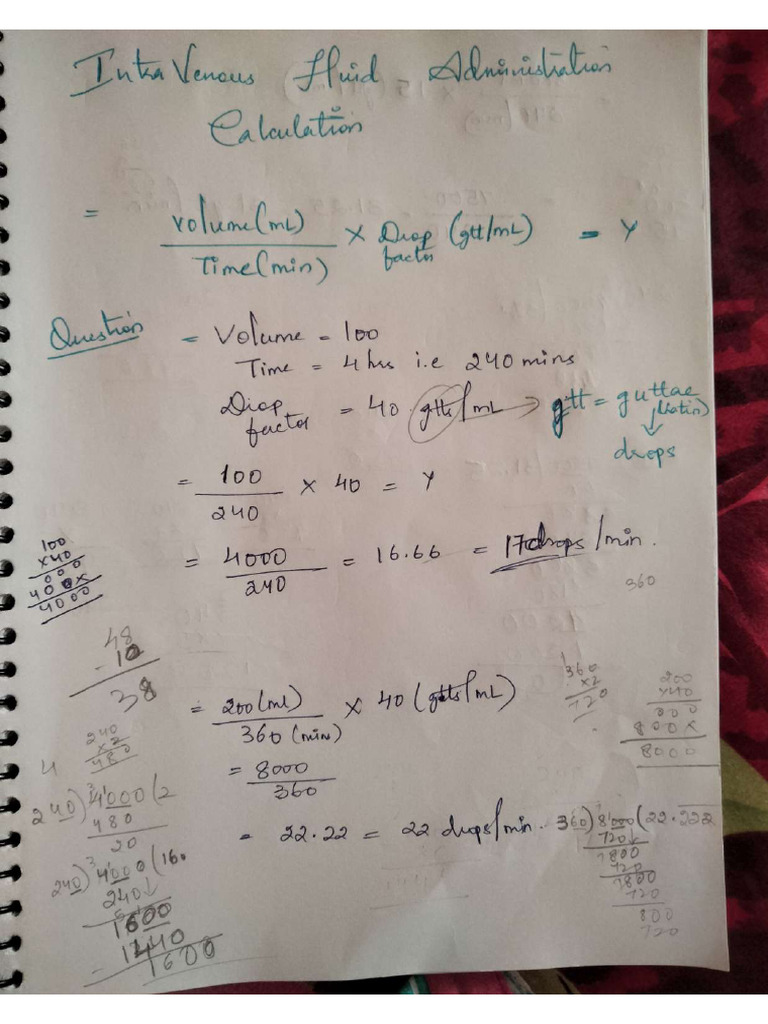 IntraVenous Fluid Administration
Calculation
= Volume(mL) / Time(min) × Drop factor (gtt/mL) = Y
Question = Volume = 100
Time = 4 hrs i.e 240 mins
Drop factor = 40 gtts/mL → gtt = guttae (latin)
drops
= 100 / 240 × 40 = Y
= 4000 / 240 = 16.66 = 17 drops/min.
100
×40
000
400×
4000
360
48
- 10
38
= 200(ml) / 360(mins) × 40 (gtts/mL)
360
×2
720
200
×40
000
800×
8000
= 8000 / 360
240
×2
480
4
240)4000(2
480
20
= 22.22 = 22 drops/min.
360)8000(22.222
720
800
720
800
720
800
720
240)4000(160
240
1600
- 1440
1600